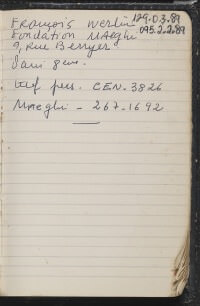 François Werlin
129.03.89
Fondation Maeghi
095.2.2.89
9, Rue Berryer
Paris 8em.
Tef pers. CEN. 3826
Maeghi - 267-1692